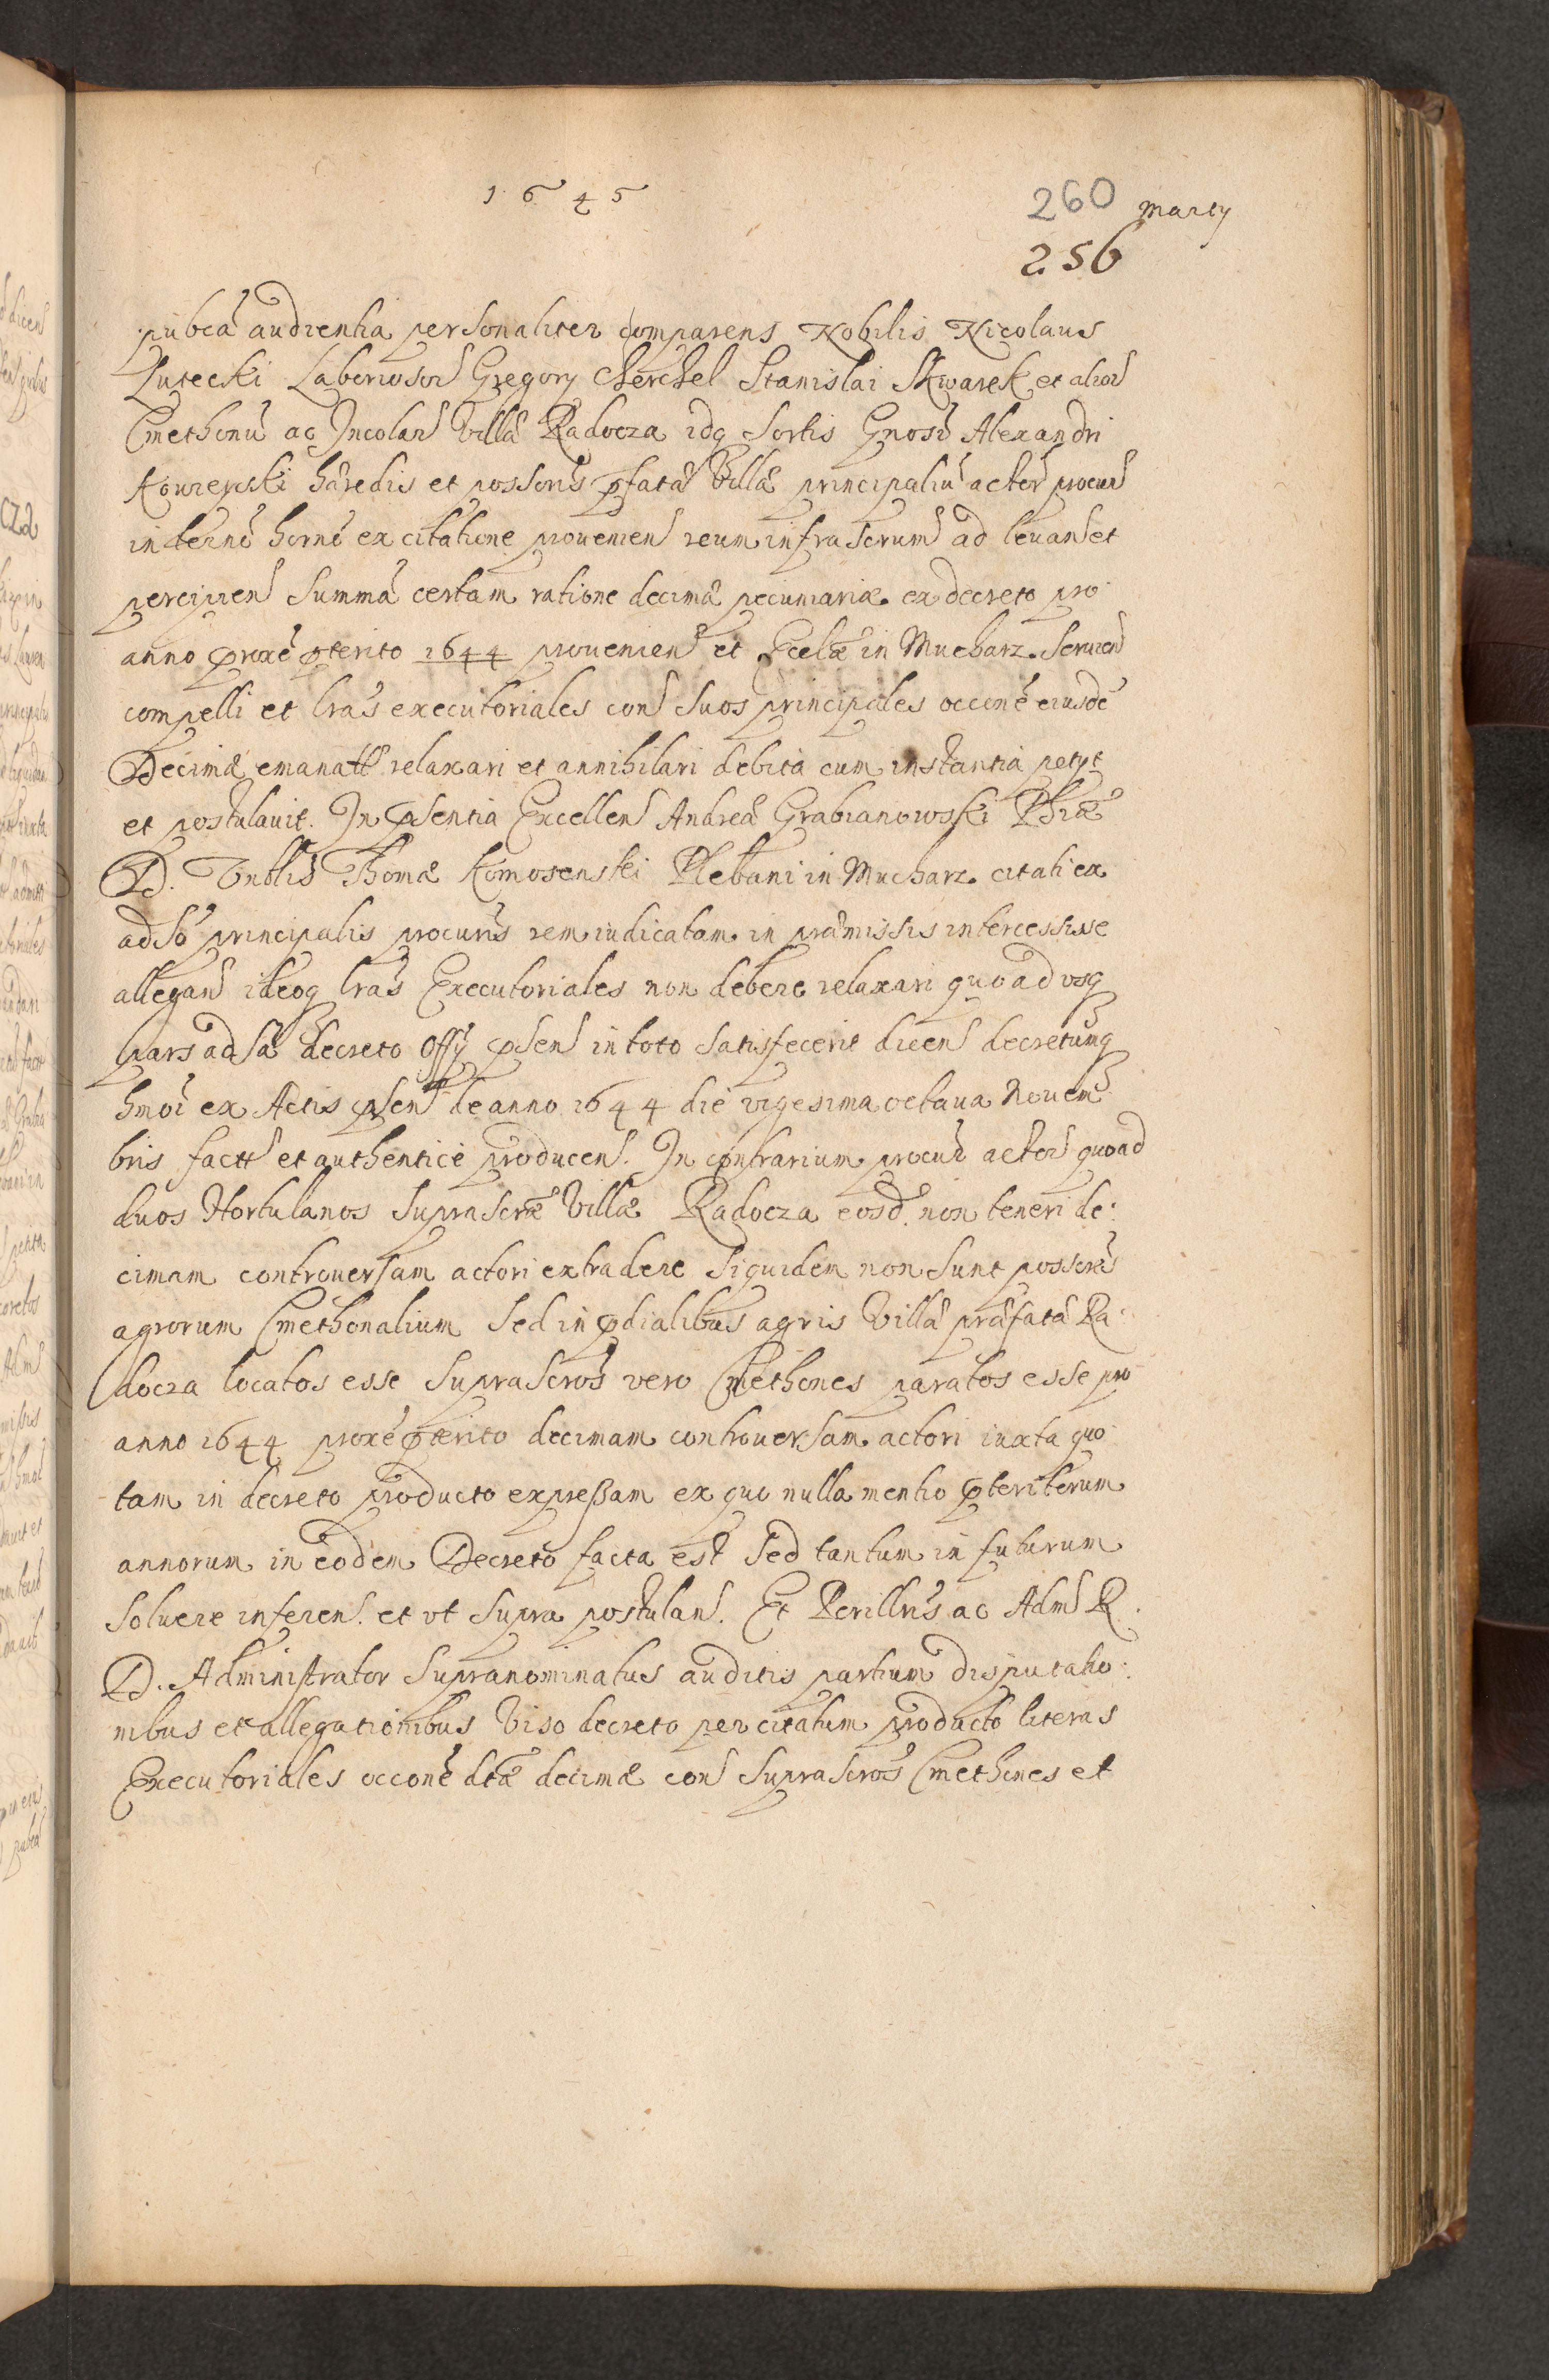 1645
260 Marty
256
pubca audientia personaliter comparens Nobilis Nicolaus
Lutecki Laboriosor Gregory Cherchel Stanislai Skwarek et alior
Cmethonu ac Incolar Villæ Radocza idq Sortis Gnosi Alexandri
hæredis et possoris pfatæ Villæ principaliu actor procur
in termo horno ex citatione prouenien reum infrascrum ad leuan et
percipien Summa certam ratione decimæ pecuniariæ ex decreto pro
anno proxe pterito 1644 prouenien et Eccliæ in Mucharz Seruien
compelli et lras executoriales con Suos principales occone eiusde
Decimæ emanatt relaxari et annihilari debita cum instantia petyt
et postulauit. In psentia Excellen Andreæ Grabianowski Phiæ
D. Vnblis Thomæ Komosenski Plebani in Mucharz citati ex
adso principalis procuris rem iudicatam in præmissis intercessisse
allegan ideoq lras Executoriales non debere relaxari quoad vsq
pars adsa decreto Offy psen in toto satisfecerit dicen decretumq
hmoi ex Actis psen de anno 1644 die vigesima octaua Nouem
bris factt et authentice producen. In contrarium procur actor quoad
duos Hortulanos suprascræ Villæ Radocza eosd. non teneri de:
cimam controuersam actori extradere siquidem non sunt possores
agrorum Cmethonalium sed in pdialibus agris Villæ præfatæ Ra:
docza locatos esse suprascros vero Cmethones paratos esse pro
anno 1644 proxe pterito decimam controuersam actori iuxta quo
tam in decreto producto expreßam ex quo nulla mentio pteritorum
annorum in eodem Decreto facta est sed tantum in futurum
soluere inferen. et vt supra postulan. Et Perillris ac Adm R.
D. Administrator supranominatus auditis partium disputatio:
nibus et allegationibus Viso decreto per citatum producto literas
Executoriales occone dtæ decimæ con suprascros Cmethones et